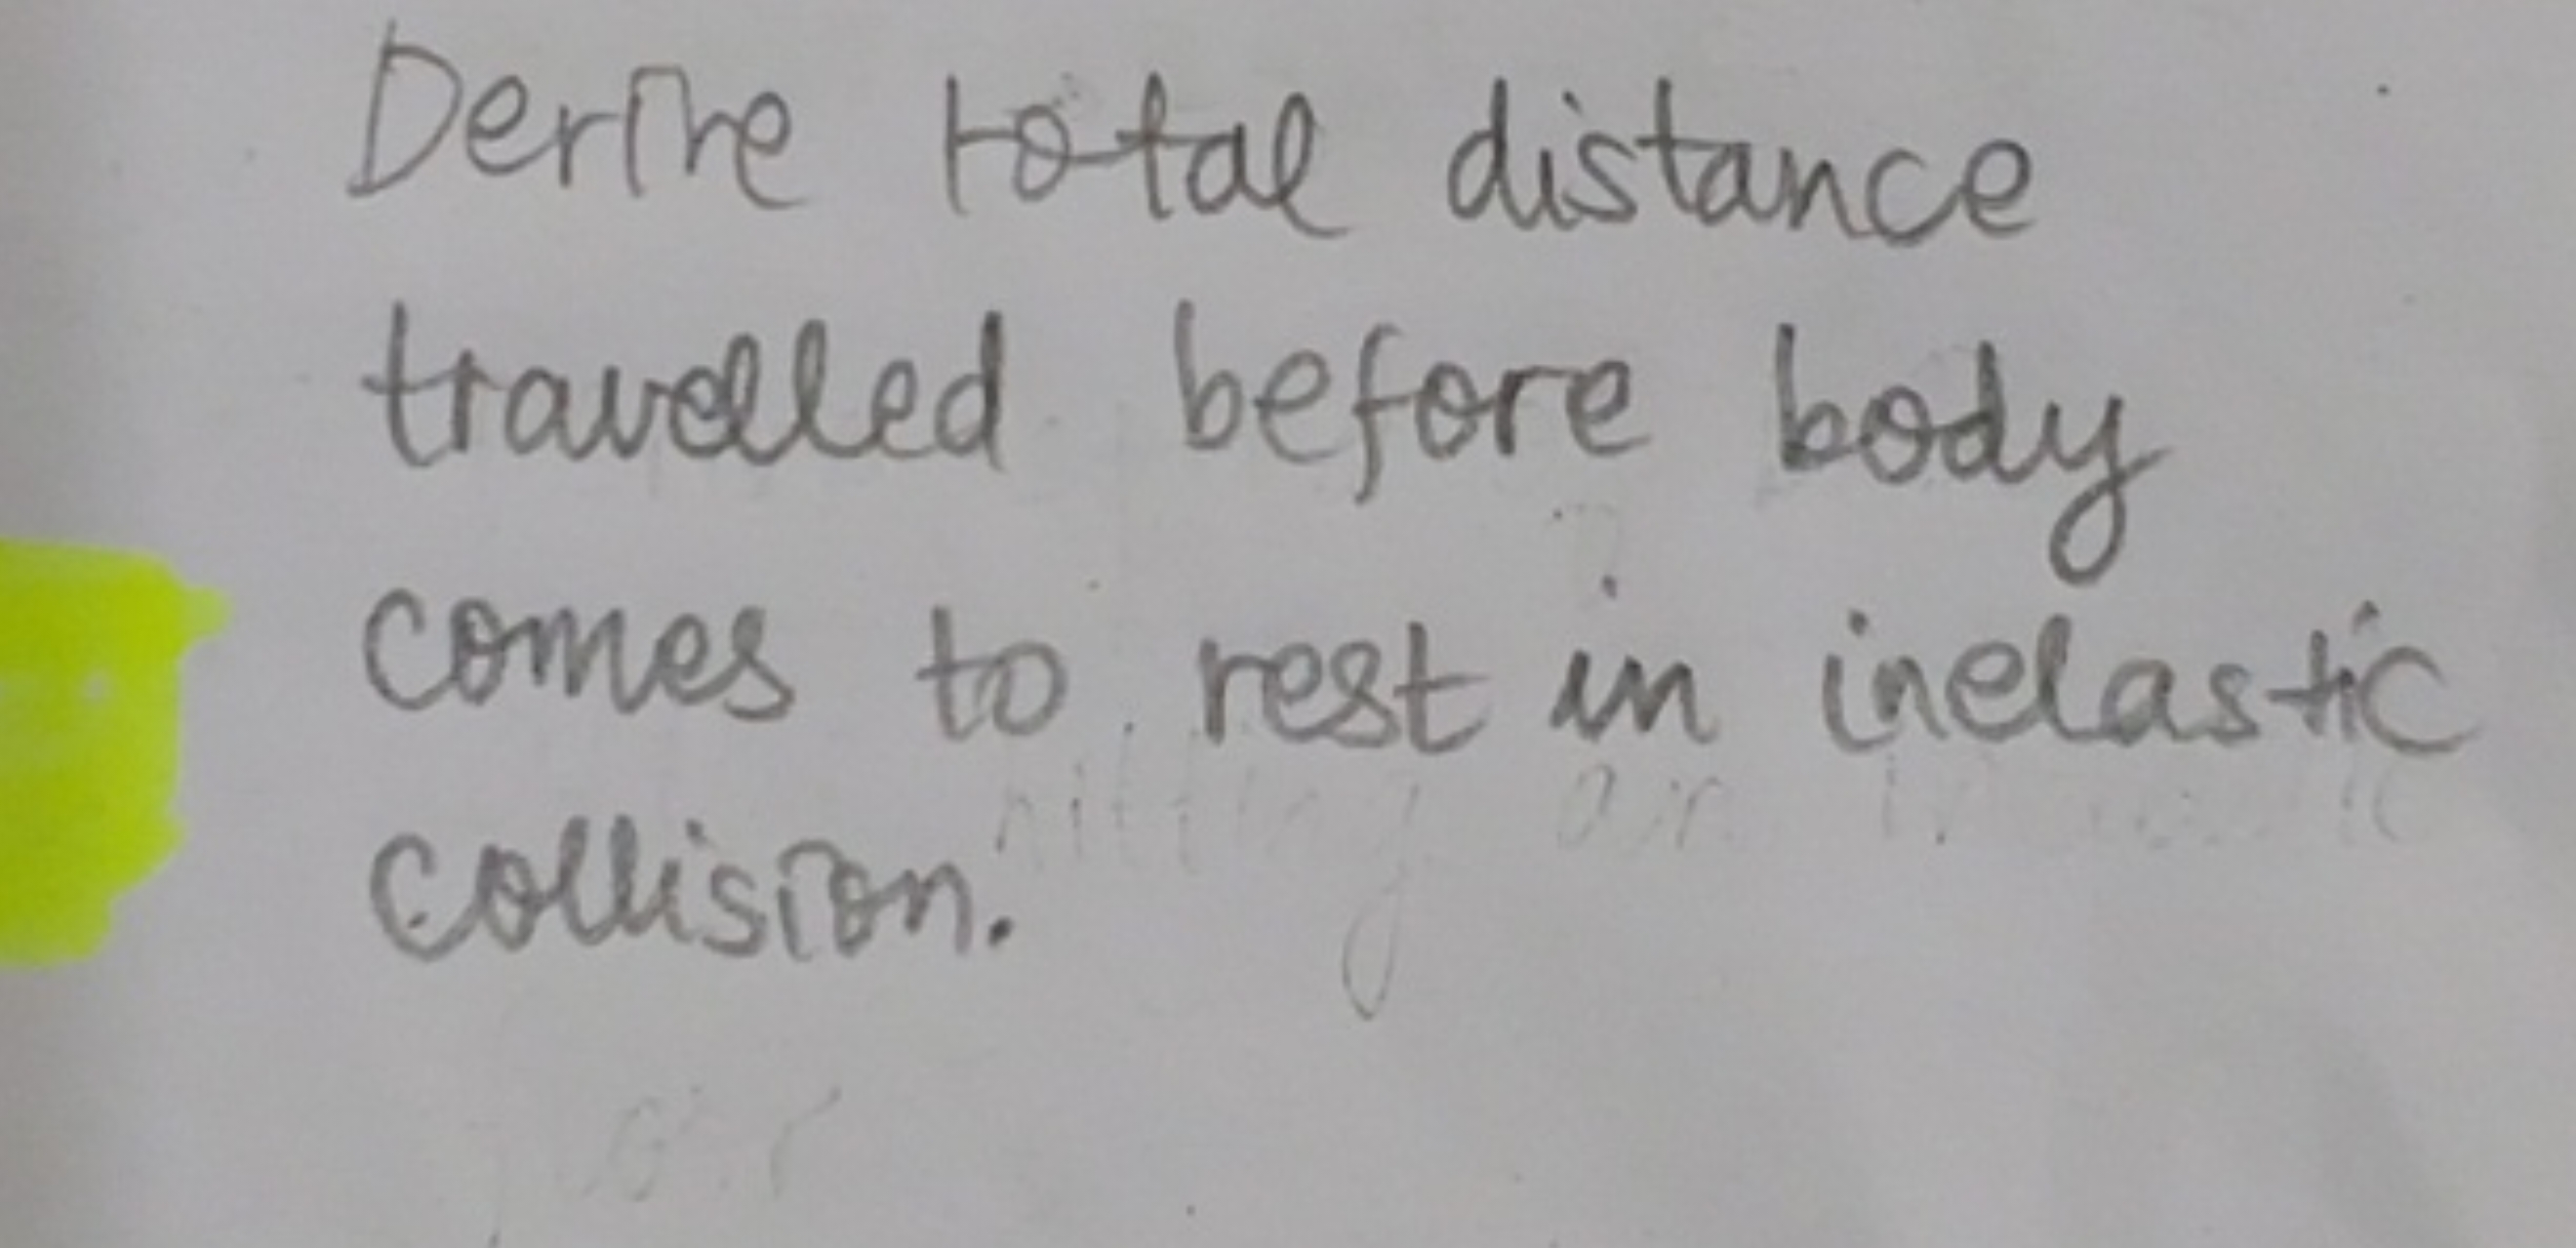 Derive total distance
travelled before body
comes to rest in inelastic
collision.